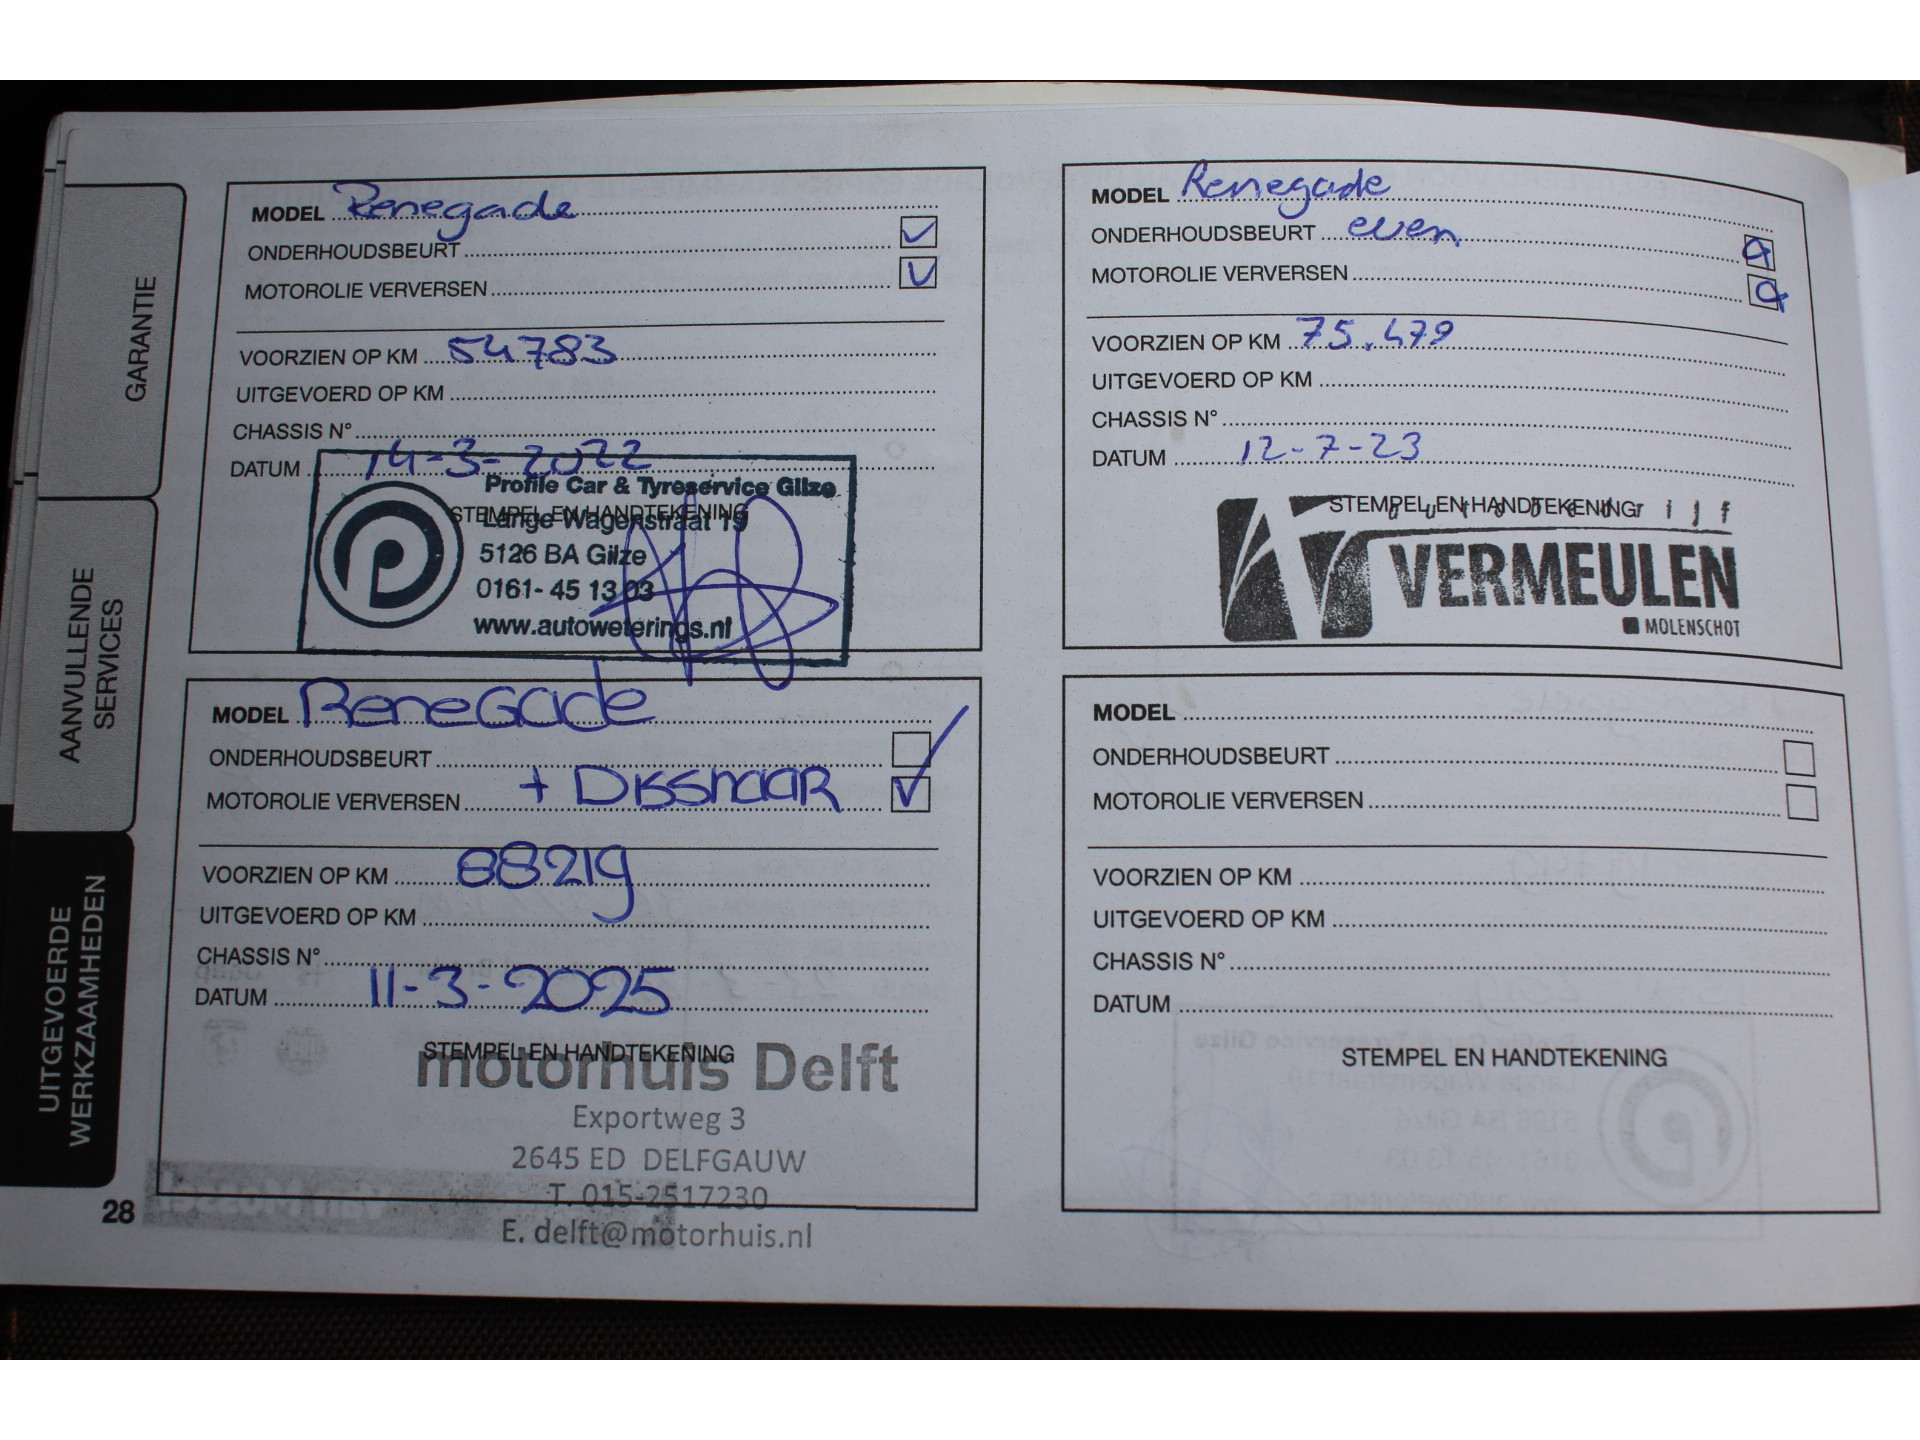 GARANTIE
AANVULLENDE
SERVICES
UITGEVOERDE
WERKZAAMHEDEN
MODEL Renegade
ONDERHOUDSBEURT
MOTOROLIE VERVERSEN
VOORZIEN OP KM 54783
UITGEVOERD OP KM
CHASSIS N°
DATUM 14-3-2022
STEMPEL EN HANDTEKENING
Profile Car & Tyreservice Gilze
Lange Wagenstraat 19
5126 BA Gilze
0161- 45 13 03
www.autoweterings.nl
MODEL Renegade
ONDERHOUDSBEURT even
MOTOROLIE VERVERSEN
VOORZIEN OP KM 75.479
UITGEVOERD OP KM
CHASSIS N°
DATUM 12-7-23
STEMPEL EN HANDTEKENING
autobedrijf
VERMEULEN
MOLENSCHOT
MODEL ReneGade
ONDERHOUDSBEURT
MOTOROLIE VERVERSEN
VOORZIEN OP KM 88219
UITGEVOERD OP KM
CHASSIS N°
DATUM 11-3-2025
STEMPEL EN HANDTEKENING
motorhuis Delft
Exportweg 3
2645 ED DELFGAUW
T. 015-2517230
E. delft@motorhuis.nl
MODEL
ONDERHOUDSBEURT
MOTOROLIE VERVERSEN
VOORZIEN OP KM
UITGEVOERD OP KM
CHASSIS N°
DATUM
STEMPEL EN HANDTEKENING
28